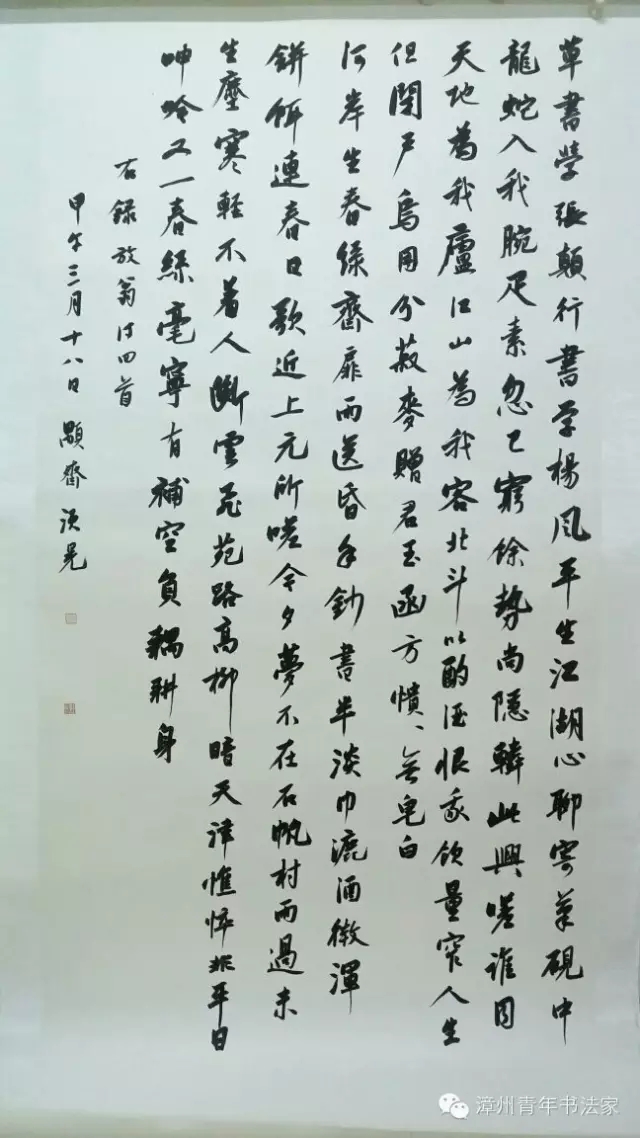 草書學張顛行書學楊風平生江湖心聊寄筆硯中
龍蛇入我腕疋素忽已窮餘勢尚隱轔此興嗟誰同
天地為我廬江山為我容北斗以酌酒恨我飲量窄人生
但閉戶烏用分菽麥贈君玉函方憒、無皂白
河岸生春綠齋扉雨送昏手鈔書半淡巾漉酒微渾
餅餌連春日歌近上元所嗟今夕夢不在石帆村雨過未
生塵寒輕不著人斷雲飛苑路高柳暗天津憔悴非平日
呻吟又一春絲毫寧有補空負耦耕身
右録放翁詩四首
甲午三月十八日 顯齋 洪晃
漳州青年书法家